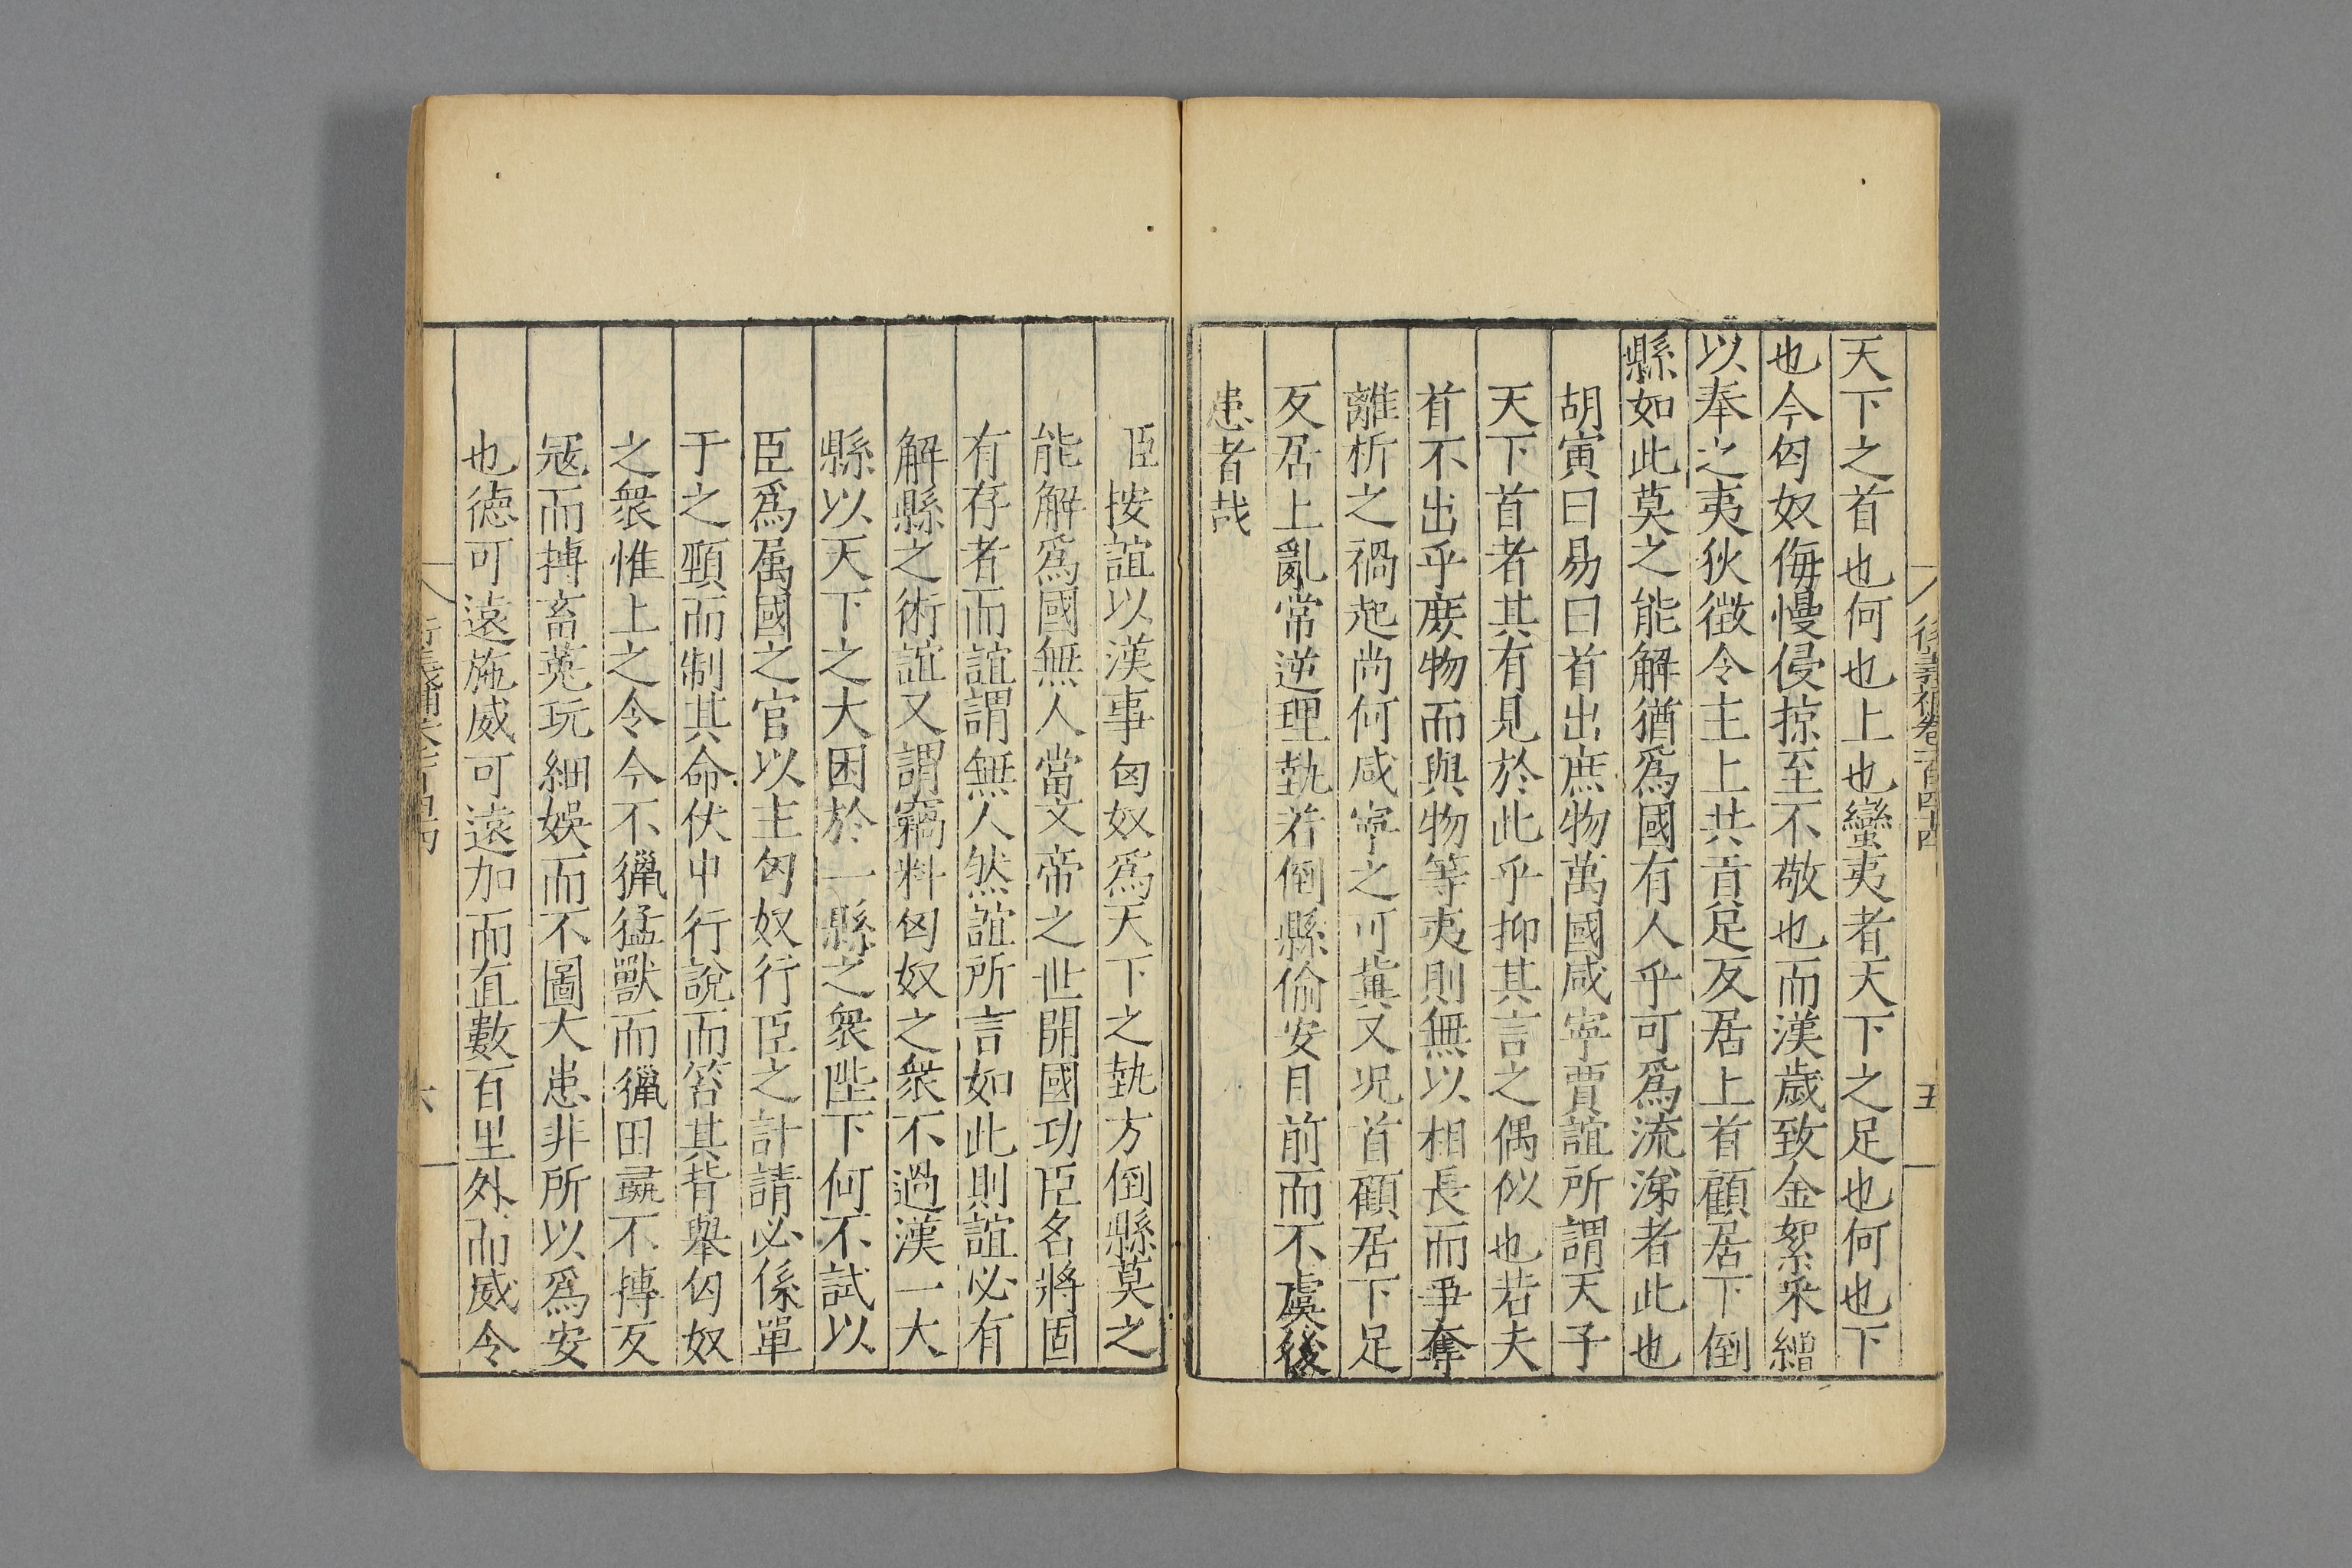 天下之首也何也上也蠻夷者天下之足也何也下
也今匈奴侮慢侵掠至不敬也而漢歲致金絮采繒
以奉之夷狄徴令主上共貢足反居上首顧居下倒
縣如此莫之能解猶爲國有人乎可爲流涕者此也
胡寅曰易曰首出庶物萬國咸寧賈誼所謂天子
天下首者其有見於此乎抑其言之偶似也若夫
首不出乎庶物而與物等夷則無以相長而爭奪
離析之禍起尚何咸寧之可兾又况首顧居下足
反居上亂常逆理執若倒縣偷安目前而不虞後
患者哉
臣按誼以漢事匈奴爲天下之執方倒縣莫之
能解爲國無人當文帝之世開國功臣名將固
有存者而誼謂無人然誼所言如此則誼必有
解縣之術誼又謂竊料匈奴之衆不過漢一大
縣以天下之大困於一縣之衆陛下何不試以
臣爲属國之官以主匈奴行臣之計請必係單
于之頸而制其命伏中行說而笞其背舉匈奴
之衆惟上之令今不獵猛獸而獵田彘不搏反
冦而搏畜菟玩細娛而不圖大患非所以爲安
也德可遠施威可遠加而直數百里外而威令
衍義補卷百四十四
五
六